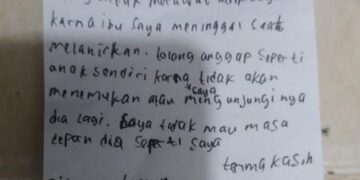 untuk merawat adik saya
karna ibu saya meninggal saat
melahirkan. tolong anggap seperti
anak sendiri karna tidak akan
menemukan atau saya mengunjungi nya
dia lagi. saya tidak mau masa
depan dia seperti saya
terma kasih